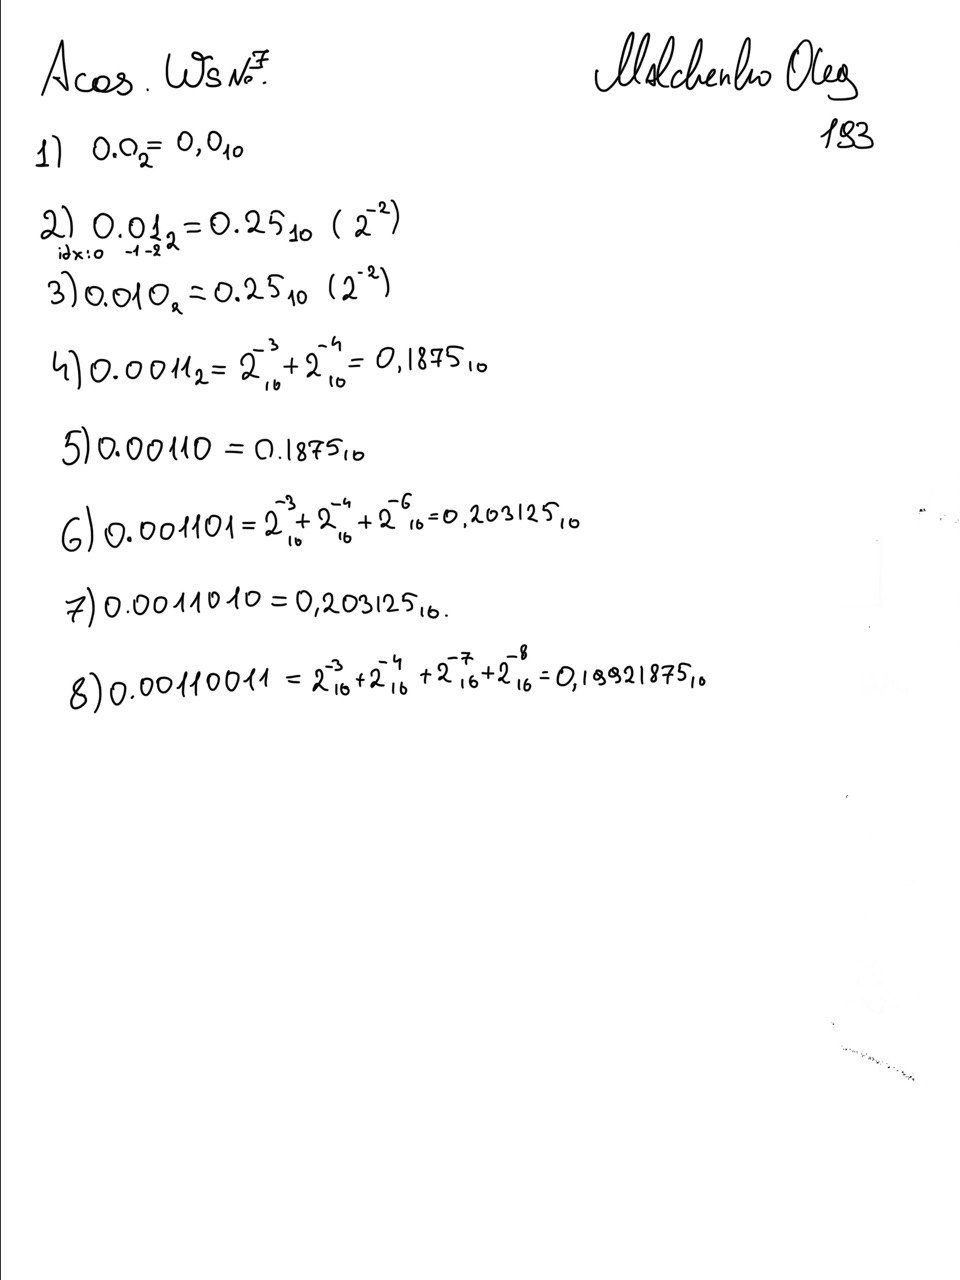 Acos. WS №7.
Molchenko Oleg
193
1) 0.0₂ = 0,0₁₀
2) 0.01₂ = 0.25₁₀ (2⁻²)
idx:0 -1 -2
3) 0.010₂ = 0.25₁₀ (2⁻²)
4) 0.0011₂ = 2⁻³₁₀ + 2⁻⁴₁₀ = 0,1875₁₀
5) 0.00110 = 0.1875₁₀
6) 0.001101 = 2⁻³₁₀ + 2⁻⁴₁₀ + 2⁻⁶₁₀ = 0,203125₁₀
7) 0.0011010 = 0,203125₁₀.
8) 0.00110011 = 2⁻³₁₀ + 2⁻⁴₁₀ + 2⁻⁷₁₀ + 2⁻⁸₁₀ = 0,19921875₁₀